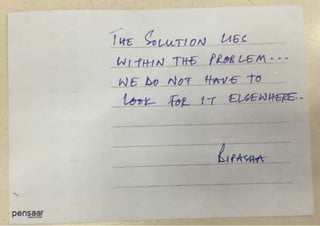 THE SOLUTION LIES
WITHIN THE PROBLEM...
WE DO NOT HAVE TO
LOOK FOR IT ELSEWHERE..
BIPASHA
pensaar